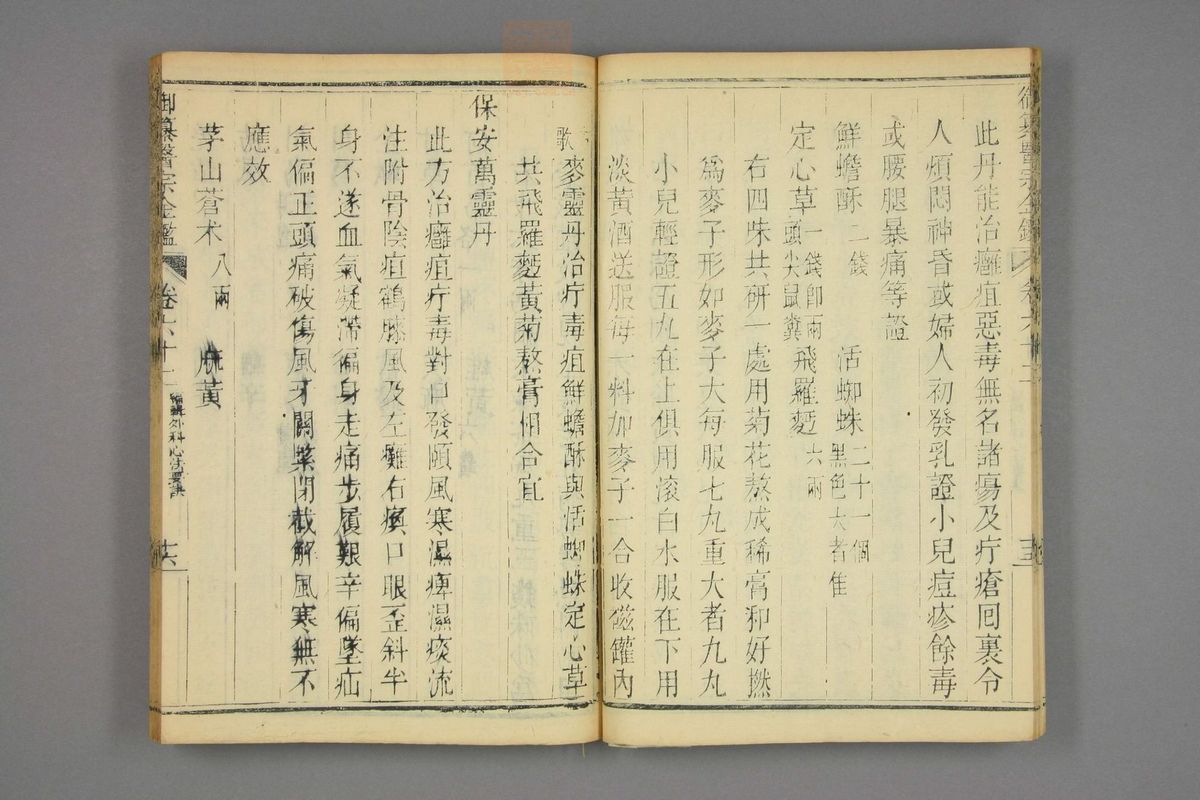 此丹能治癰疽惡毒無名諸瘍及疔瘡回裏令
人煩悶神昏或婦人初發乳證小兒痘疹餘毒
或腰腿暴痛等證
鮮蟾酥 二錢 活蜘蛛 二十一個黑色大者佳
定心草 一錢卽兩頭尖鼠糞 飛羅麪 六兩
右四味共研一處用菊花熬成稀膏和好撚
爲麥子形如麥子大每服七丸重大者九丸
小兒輕證五丸在上俱用滾白水服在下用
淡黃酒送服每一料加麥子一合收磁罐內
歌 麥靈丹治疔毒疽鮮蟾酥與活蜘蛛定心草
共飛羅麪黃菊熬膏相合宜
保安萬靈丹
此方治癰疽疔毒對口發頤風寒濕痺濕痰流
注附骨陰疽鶴膝風及左癱右瘓口眼歪斜半
身不遂血氣凝滯徧身走痛步履艱辛偏墜疝
氣偏正頭痛破傷風牙關緊閉截解風寒無不
應效
茅山蒼朮 八兩 麻黃
御纂醫宗金鑑 卷六十二 編輯外科心法要訣 十六